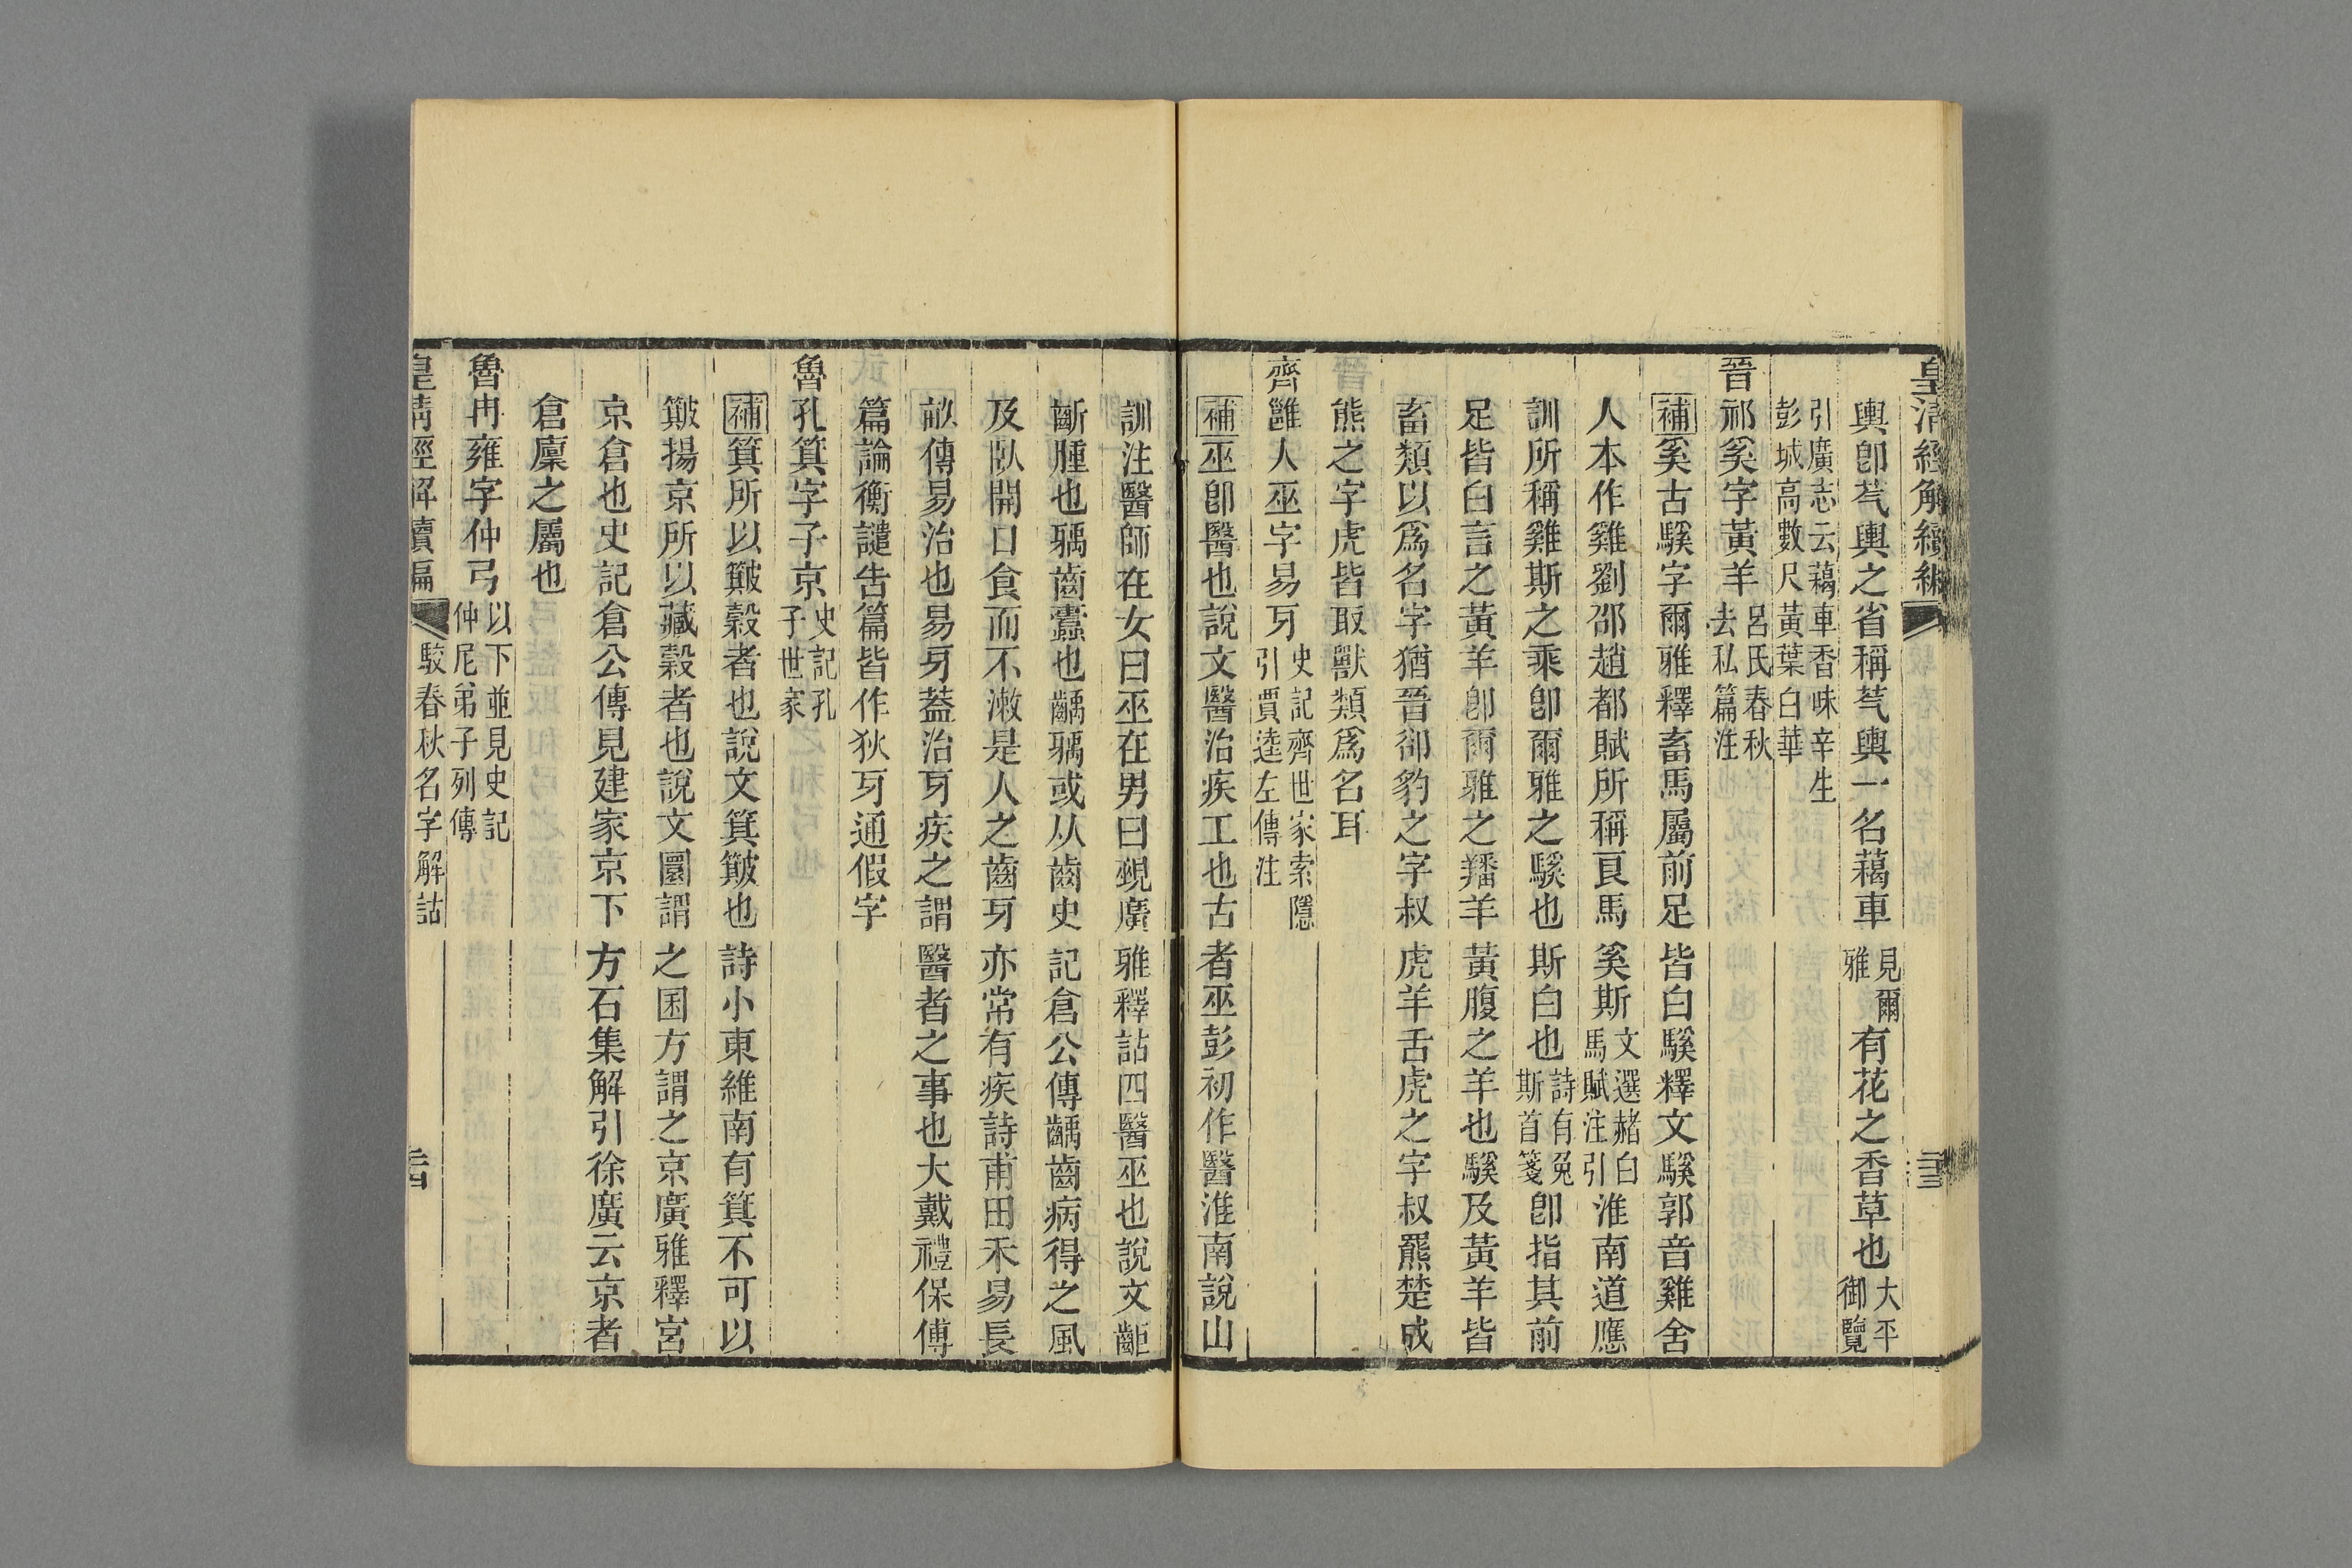 皇清經解續編
三三
輿卽芞輿之省稱芞輿一名藒車見爾雅有花之香草也大平御覽
引廣志云藒車香味辛生彭城高數尺黃葉白華
晉祁奚字黃羊呂氏春秋去私篇注
補奚古騱字爾雅釋畜馬屬前足皆白騱釋文騱郭音雞舍
人本作雞劉邵趙都賦所稱良馬奚斯文選赭白馬賦注引淮南道應
訓所稱雞斯之乘卽爾雅之騱也斯白也詩有兔斯首箋卽指其前
足皆白言之黃羊卽爾雅之羳羊黃腹之羊也騱及黃羊皆
畜類以爲名字猶晉郤豹之字叔虎羊舌虎之字叔羆楚成
熊之字虎皆取獸類爲名耳
齊雝人巫字易牙史記齊世家索隱引賈逵左傳注
補巫卽醫也說文醫治疾工也古者巫彭初作醫淮南說山
訓注醫師在女曰巫在男曰覡廣雅釋詁四醫巫也說文齟
齗腫也齲齒蠹也齲齲或从齒史記倉公傳齲齒病得之風
及臥開口食而不漱是人之齒牙亦常有疾詩甫田禾易長
畝傳易治也易牙蓋治牙疾之謂醫者之事也大戴禮保傅
篇論衡譴告篇皆作狄牙通假字
魯孔箕字子京史記孔子世家
補箕所以簸穀者也說文箕簸也詩小東維南有箕不可以
簸揚京所以藏穀者也說文圜謂之囷方謂之京廣雅釋宮
京倉也史記倉公傳見建家京下方石集解引徐廣云京者
倉廩之屬也
魯冉雍字仲弓以下並見史記仲尼弟子列傳
皇清經解續編
駁春秋名字解詁